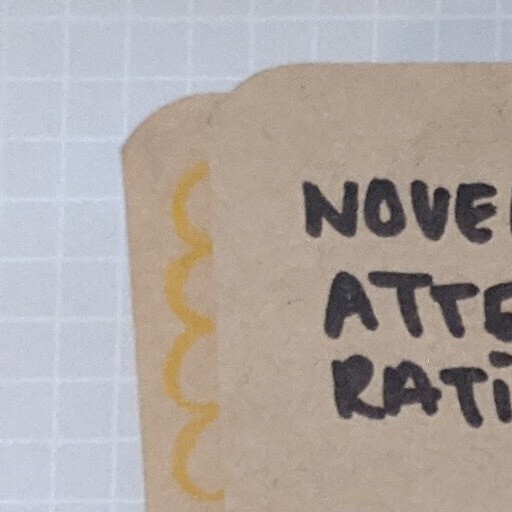 NOVE
ATTE
RATi